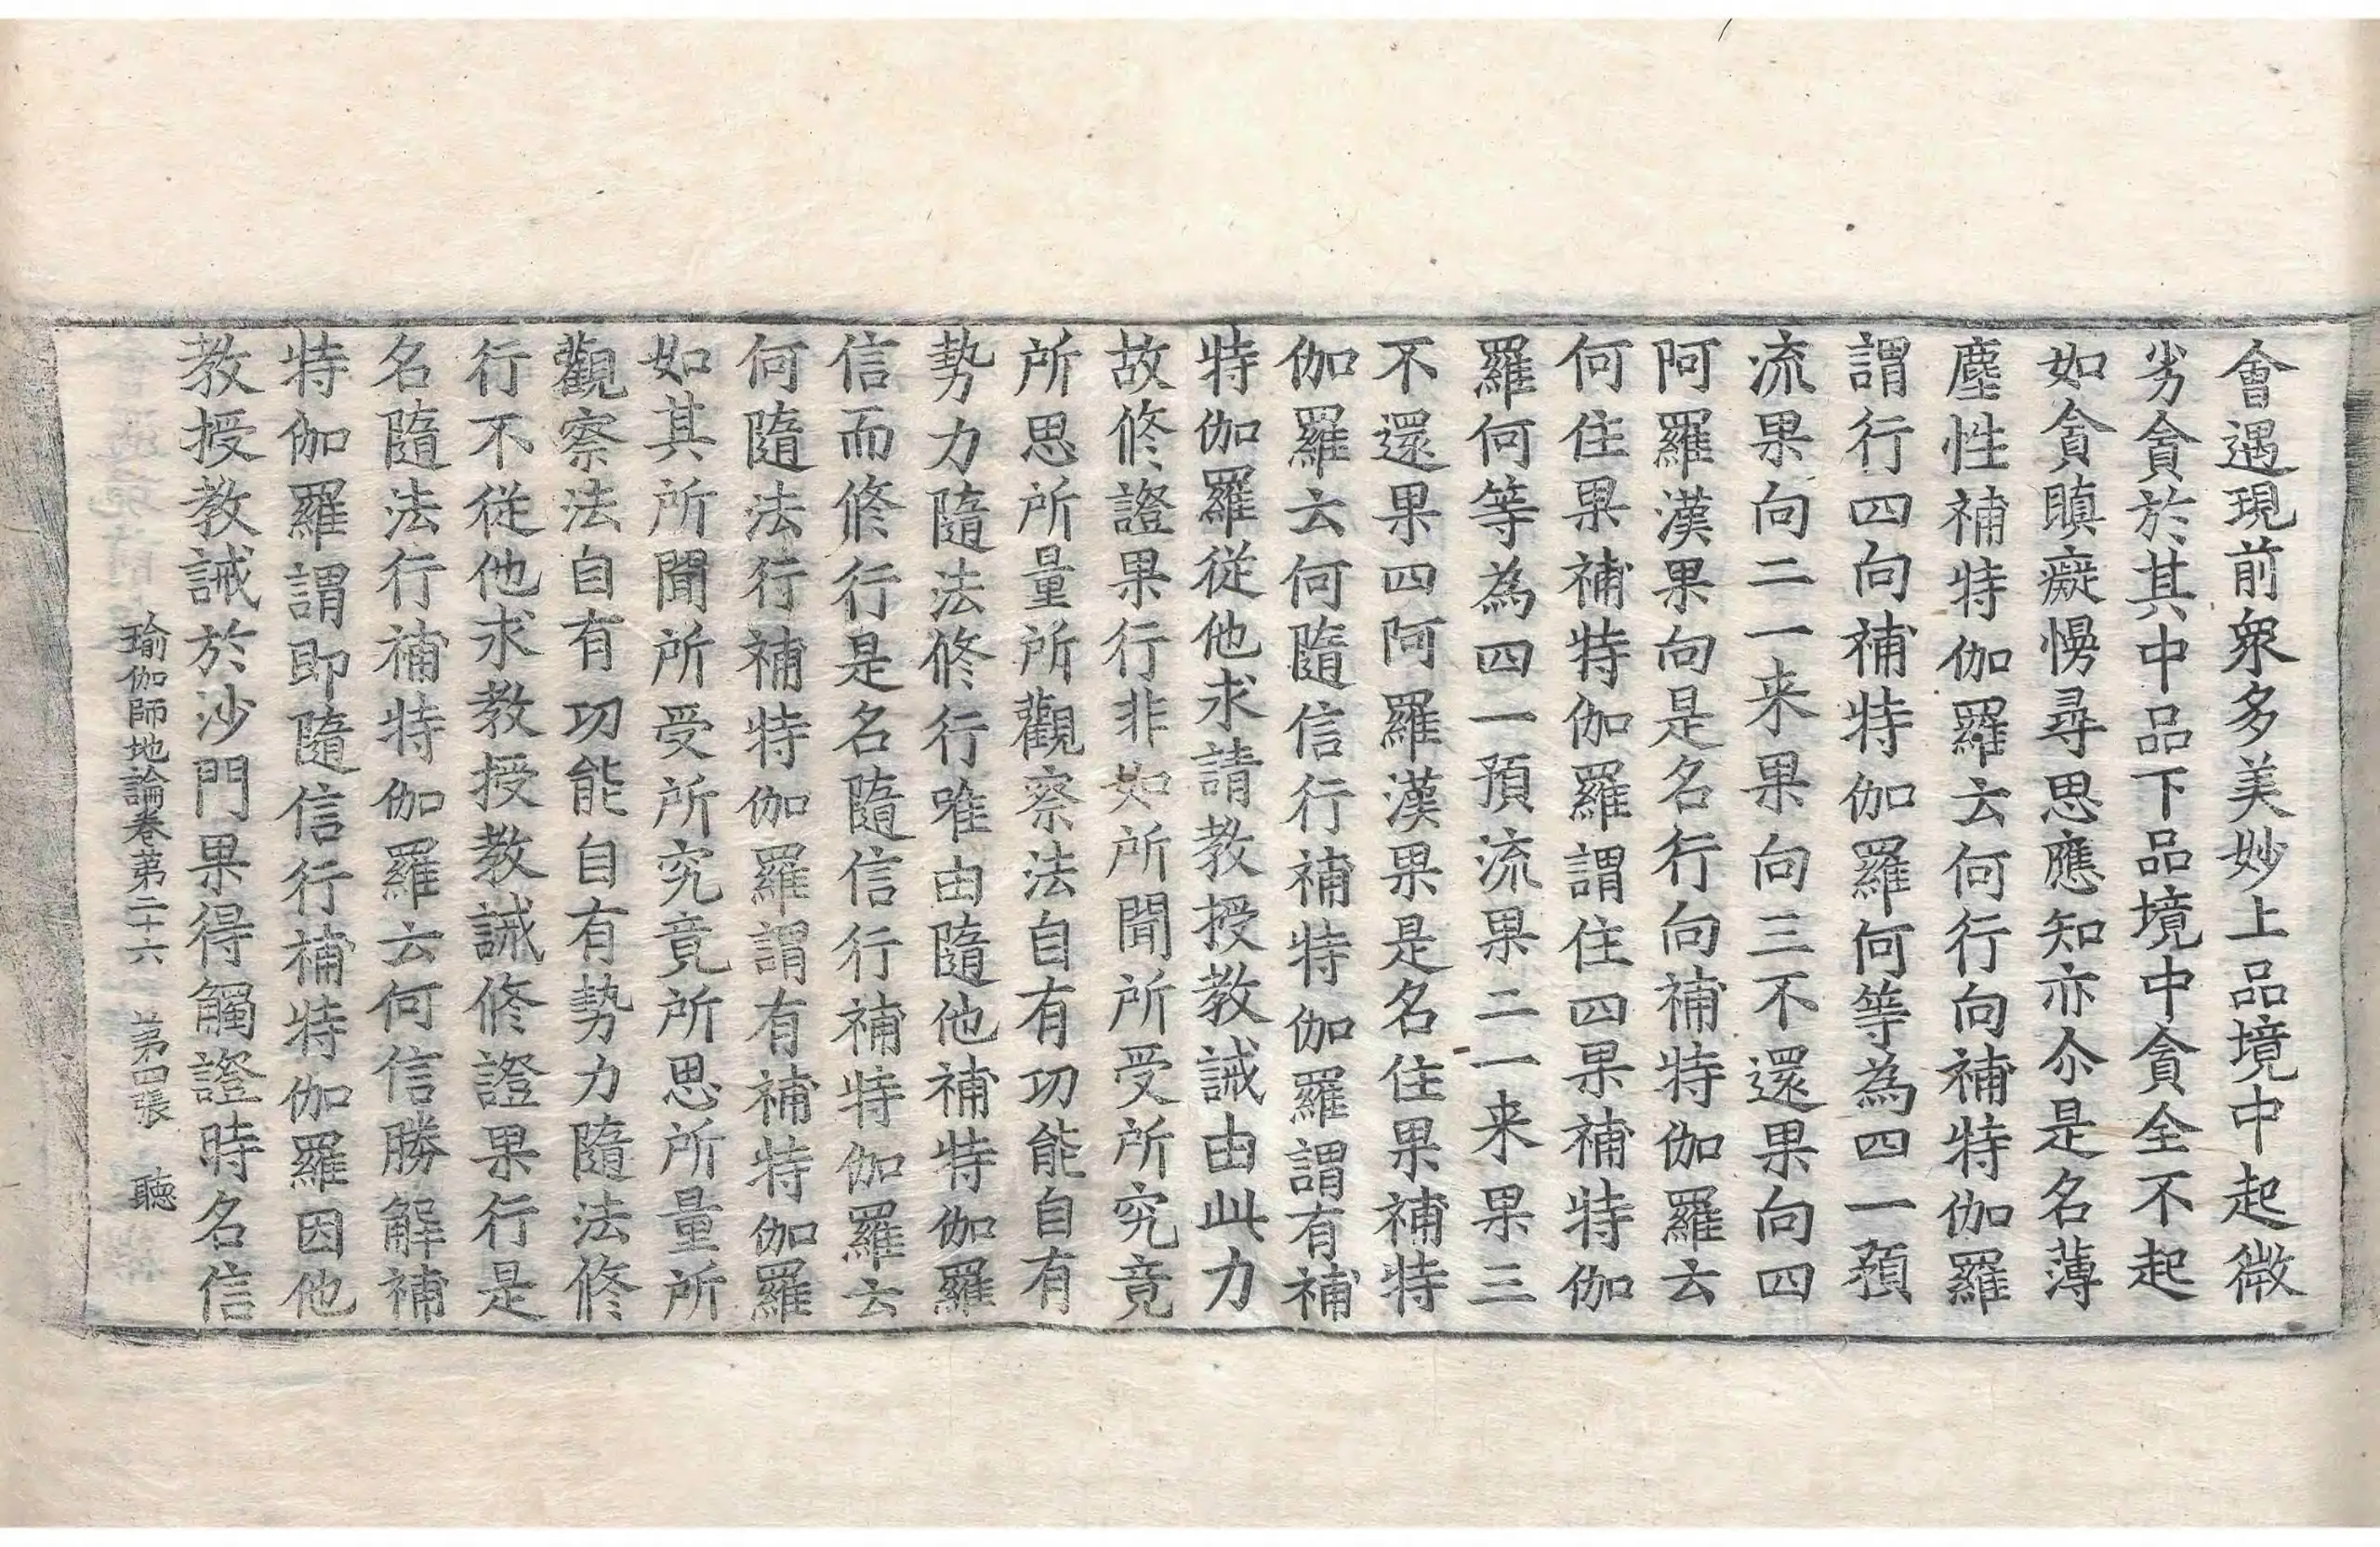 會遇現前衆多美妙上品境中起微
劣貪於其中品下品境中貪全不起
如貪瞋癡慢尋思應知亦尒是名薄
塵性補特伽羅云何行向補特伽羅
謂行四向補特伽羅何等為四一預
流果向二一来果向三不還果向四
阿羅漢果向是名行向補特伽羅云
何住果補特伽羅謂住四果補特伽
羅何等為四一預流果二一来果三
不還果四阿羅漢果是名住果補特
伽羅云何隨信行補特伽羅謂有補
特伽羅從他求請教授教誡由此力
故修證果行非如所聞所受所究竟
所思所量所觀察法自有功能自有
勢力隨法修行唯由隨他補特伽羅
信而修行是名隨信行補特伽羅云
何隨法行補特伽羅謂有補特伽羅
如其所聞所受所究竟所思所量所
觀察法自有功能自有勢力隨法修
行不從他求教授教誡修證果行是
名隨法行補特伽羅云何信勝解補
特伽羅謂即隨信行補特伽羅因他
教授教誡於沙門果得觸證時名信
瑜伽師地論卷第二十六 第四張 聽